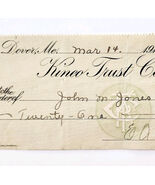 Dover, Me. Mar 14, 19
Kineo Trust Co
the
order of John M. Jones
Twenty-One